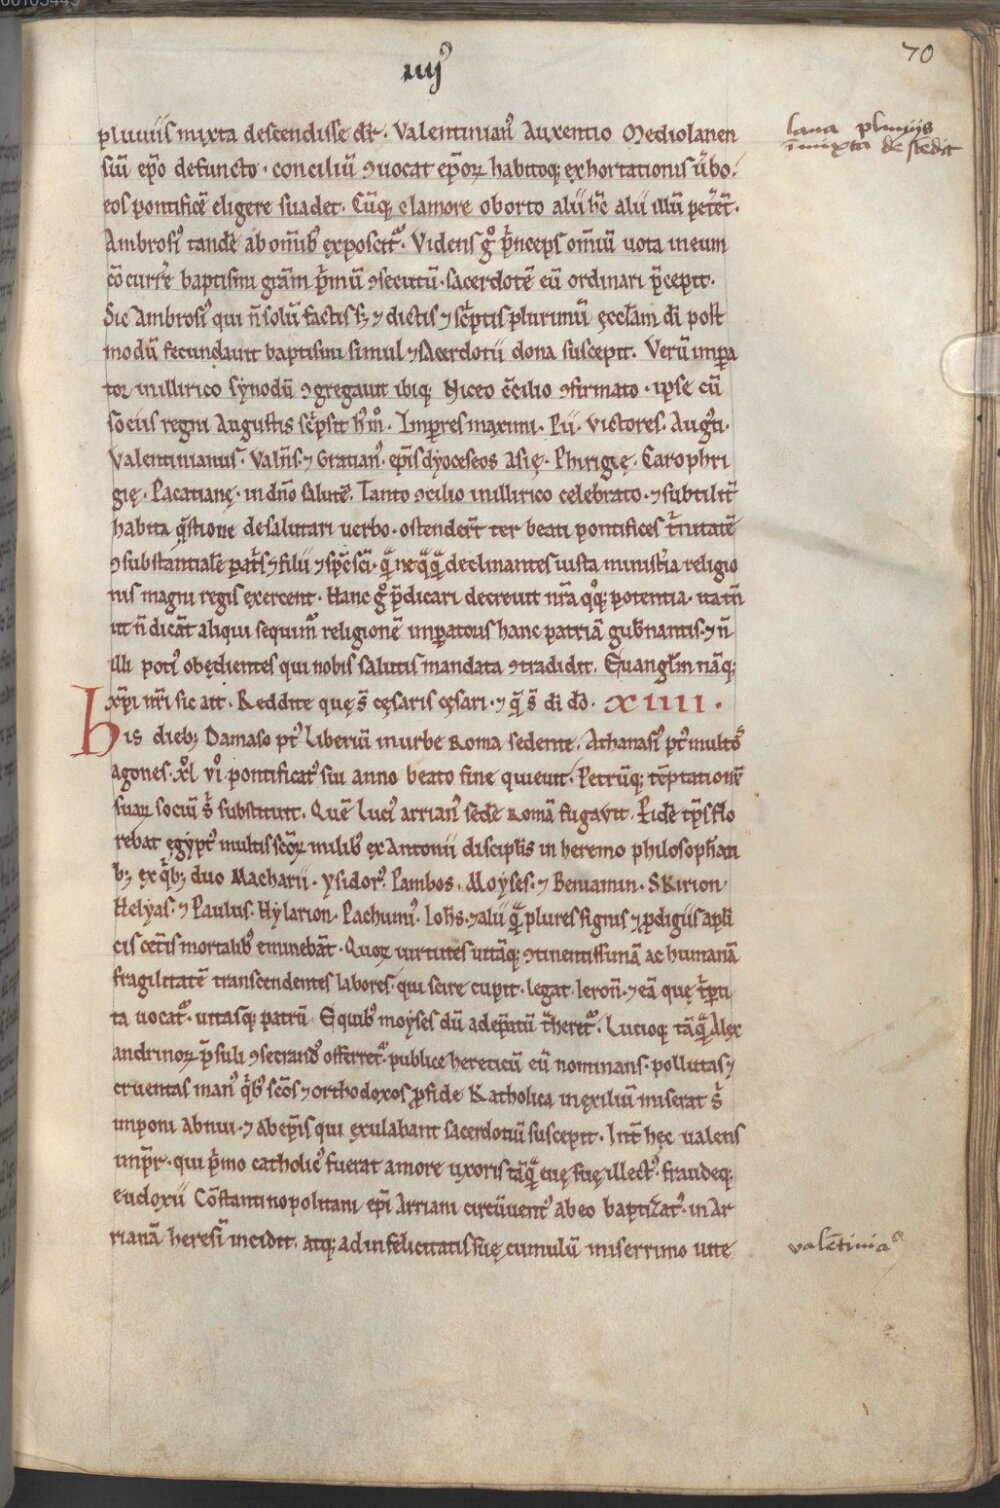 70
iiij
lana pluuijs
immixta descēdit
pluuiis mixta descendisse dr̄. Valentinianꝰ Auxentio Mediolanen
siū ep̄o defuncto. conciliū ꝯuocat ep̄oꝝ habitoq; exhortationis ūbo.
eos pontificē eligere suadet. Cūq; clamore oborto alii h̄c alii illū peter̄t.
Ambrosiꝰ tandē ab om̄ibꝰ exposcit᷑. Videns gͦ p̄nceps om̄iū uota in eum
cōcurrͤe baptismi gr̄am pͥmū ꝯsecutū. sacerdotē eū ordinari p̄cepit.
Sic Ambrosiꝰ qui n̄ solū factis sꝫ ⁊ dictis ⁊ scͥptis plurimū ęccl̄am dī post
modū fecundauit baptismi simul ⁊ sacerdotii dona suscepit. Verū imꝑa
tor in illirico synodū ꝯgregauit ibiq; Niceo c̄cilio ꝯfirmato. ipse cū
sociis regni Augustis scͥpsit h̄ mͦ. Imꝑres maximi. Pii. Victores. Augͭi.
Valentinianus. Valn̄s. ⁊ Gratianꝰ. ep̄is dyoceseos Asię. Phrigię. Carophri
gię. Pacatianę. in dn̄o salutē. Tanto ꝯcilio in illirico celebrato. ⁊ subtilit᷑
habita q̄stione de salutari uerbo. ostender̄t ter beati pontifices tͥnitatē
ꝯsubstantialē patͥs ⁊ filii ⁊ sp̄c sc̄i. qͣ neqͣqͣ declinantes iusta ministͥa religio
nis magni regis exercent. Hanc gͦ p̄dicari decreuit nr̄a qͦq; potentia. ita tn̄
ut n̄ dicāt aliqui sequim᷑ religionē imꝑatoris hanc patriā gub̄nantis. ⁊ n̄
illi potiꝰ obędientes qui nobis salutis mandata ꝯtradidit. Euangl̄m nāq;
xp̄i nr̄i sic ait. Reddite quę s̄ cęsaris cęsari. ⁊ q̄ s̄ dī dō. XIIII.
His dieb; Damaso pꝰt Liberiū in urbe Roma sedente. Athanasiꝰ pꝰt multoꝰs
agones. xͦl vͦi pontificatꝰ sui anno beato fine quieuit. Petrūq; tēptationū
suaꝝ sociū s̄ substituit. Quē Luciꝰ arrianꝰ sede Romā fugauit. Eidē tp̄s flo
rebat ęgyptꝰ multis sc̄oꝝ milibꝰ ex Antonii discipl̄is in heremo philosophan̄ti
b; ex qͥb; duo Macharii. ysidorꝰ. Pambos. Moyses. ⁊ Beniamin. Skirion.
Helyas. ⁊ Paulus. Hylarion. Pachumiꝰ. Ioh̄s. ⁊ alii qͣ plures signis ⁊ ꝓdigiis apl̄i
cis cet̄is mortalibꝰ eminebāt. Quoꝝ uirtutes uitāq; ꝯtinentissimā ac humanā
fragilitatē transcendentes labores. qui scire cupit. legat Ieron̄. ⁊ eā quę tͥperti
ta uocat᷑. uitasq; patrū. Equibꝰ moyses dū ad ep̄atū tͣheret᷑. Lucioq; tāqͣ Alex
andrinoꝝ p̄suli ꝯsecrandꝰ offerret᷑. publice hereticū eū nominans. pollutas ⁊
cruentas manꝰ qͥbꝰ sc̄os ⁊ orthodoxos ꝓ fide Katholica in exiliū miserat s̄
imponi abnuit. ⁊ ab ep̄is qui exulabant sacerdotiū suscepit. Int̄ hęc ualens
imꝑr. qui pͥmo catholicꝰ fuerat amore uxoris tāqͣ euę suę illectꝰ. fraudeq;
eudoxii Cōstantinopolitani ep̄i Arriani circūuentꝰ ab eo baptizatꝰ. in Ar
rianā heresī incidit. atq; ad infelicitatis suę cumulū miserrimo uite
valētiniaꝰ